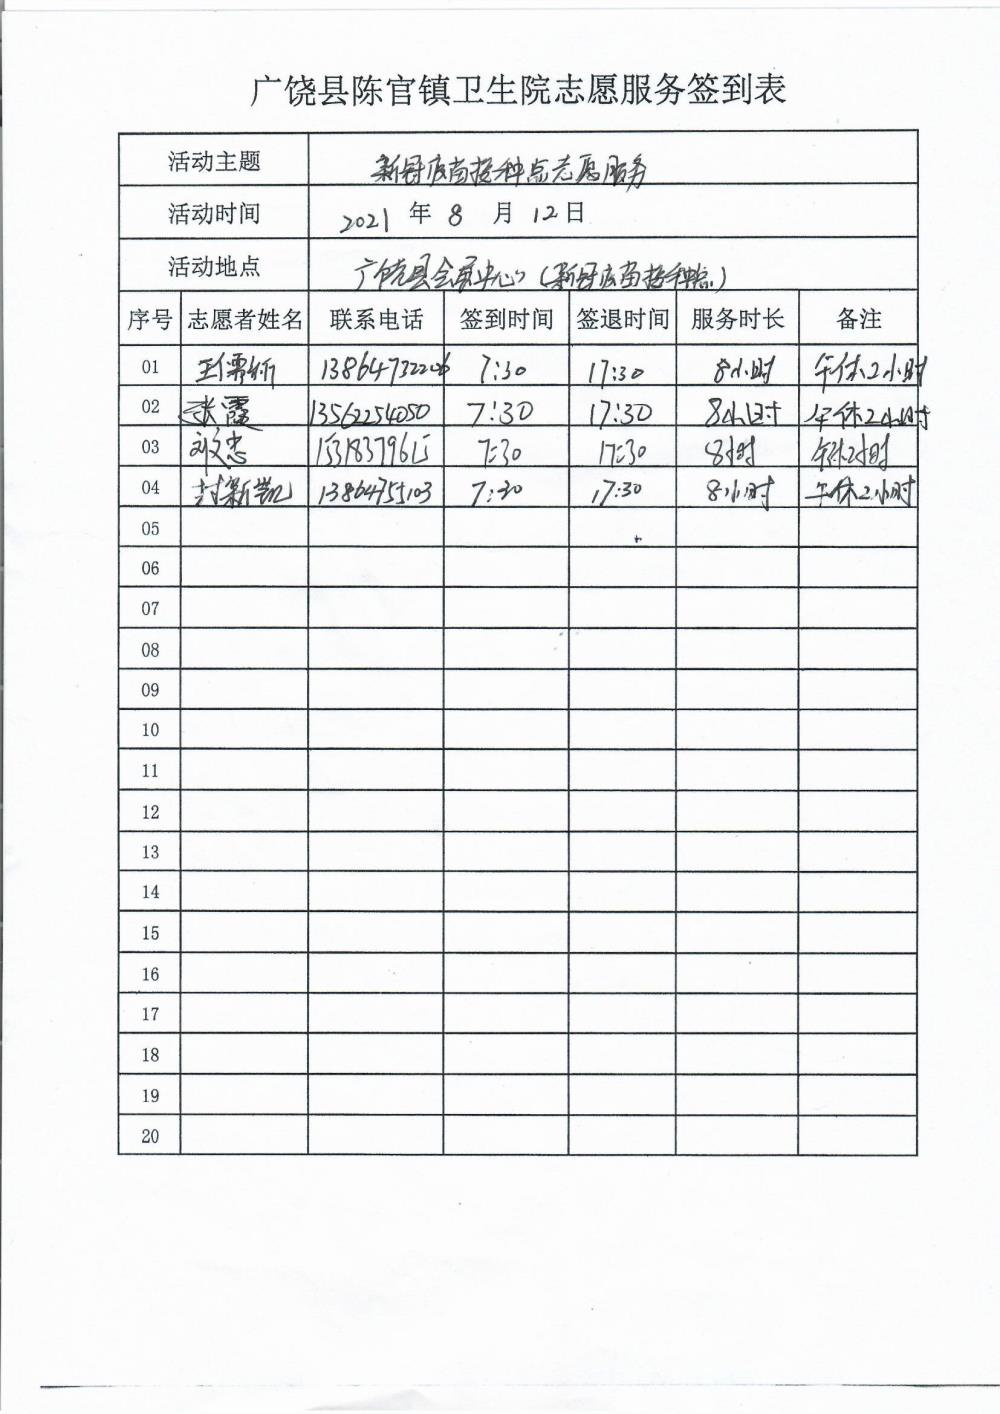 广饶县陈官镇卫生院志愿服务签到表
活动主题 新冠疫苗接种点志愿服务
活动时间 2021 年 8 月 12 日
活动地点 广饶县会展中心（新冠疫苗接种点）
序号 志愿者姓名 联系电话 签到时间 签退时间 服务时长 备注
01 王儒娇 13864732206 7:30 17:30 8小时 午休2小时
02 张霞 13562254050 7:30 17:30 8小时 午休2小时
03 刘文忠 7:30 17:30 8小时 午休2小时
04 封新凯 13864755103 7:30 17:30 8小时 午休2小时
05
06
07
08
09
10
11
12
13
14
15
16
17
18
19
20